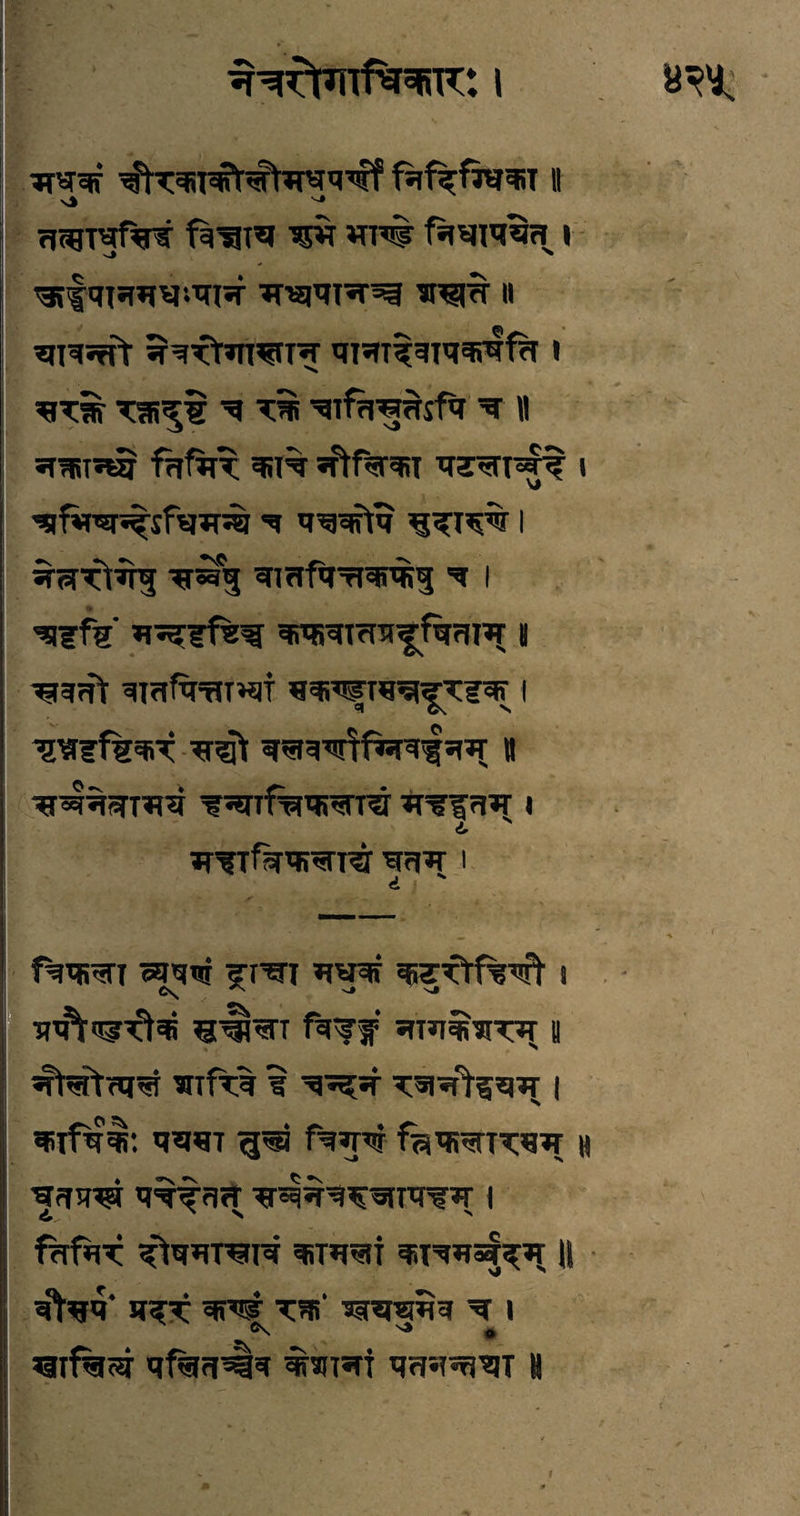 नेत्ररोगाधिकारः । ४२५
मधुकं क्षीरकाकोलीमधुपर्णी निदिग्धिका ॥
तत्साधुसिद्धं विज्ञाय शुभे भाण्डे निधापयेत् ।
ऊर्द्ध्वपानमधःपानं मध्यपानञ्च शस्यते ॥
यावन्तो नेत्ररोगास्तान् पानादेवापकर्षति ।
सरक्ते रक्तदुष्टे च रक्ते चातिस्रुतेऽपि च ॥
नक्तान्ध्ये तिमिरे काचे नीलिका पटलार्बुदे ।
अभिष्यन्देऽधिमन्थे च पक्ष्मकोपे सुदारुणे ।
नेत्ररोगेषु सर्वेषु वातपित्तकफेषु च ।
अदृष्टिं मन्ददृष्टिञ्च कफवातप्रदूषिताम् ॥
स्रवतो वातपित्ताभ्यां सकण्ड्वासन्नदूरदृक् ।
गृध्रदृष्टिकरं सद्यो बलवर्णाग्निवर्द्धनम् ॥
सर्वनेत्रामयं हन्यात्त्रिफलाद्यं महद्घृतम् ।
महात्रिफलाद्यं घृतम् ।
त्रिफला त्र्यूषणं द्राक्षा मधुकं कटुरोहिणी ।
प्रपौण्डरीकं सूक्ष्मैला विडङ्गं नागकेशरम् ॥
नीलोत्पलं शारिवे द्वे चन्दनं रजनीद्वयम् ।
कार्षिकैः पयसा तुल्यं त्रिगुणं त्रिफलारसम् ॥
घृतप्रस्थं पचेदेतत् सर्वनेत्ररुजापहम् ।
तिमिरं दोषमास्रावं कामलां काचमर्बुदम् ॥
वीसर्पं प्रदरं कण्डूं रक्तं श्वयथुमेव च ।
खालित्यं पलितञ्चैव केशानां पतनन्तथा ॥